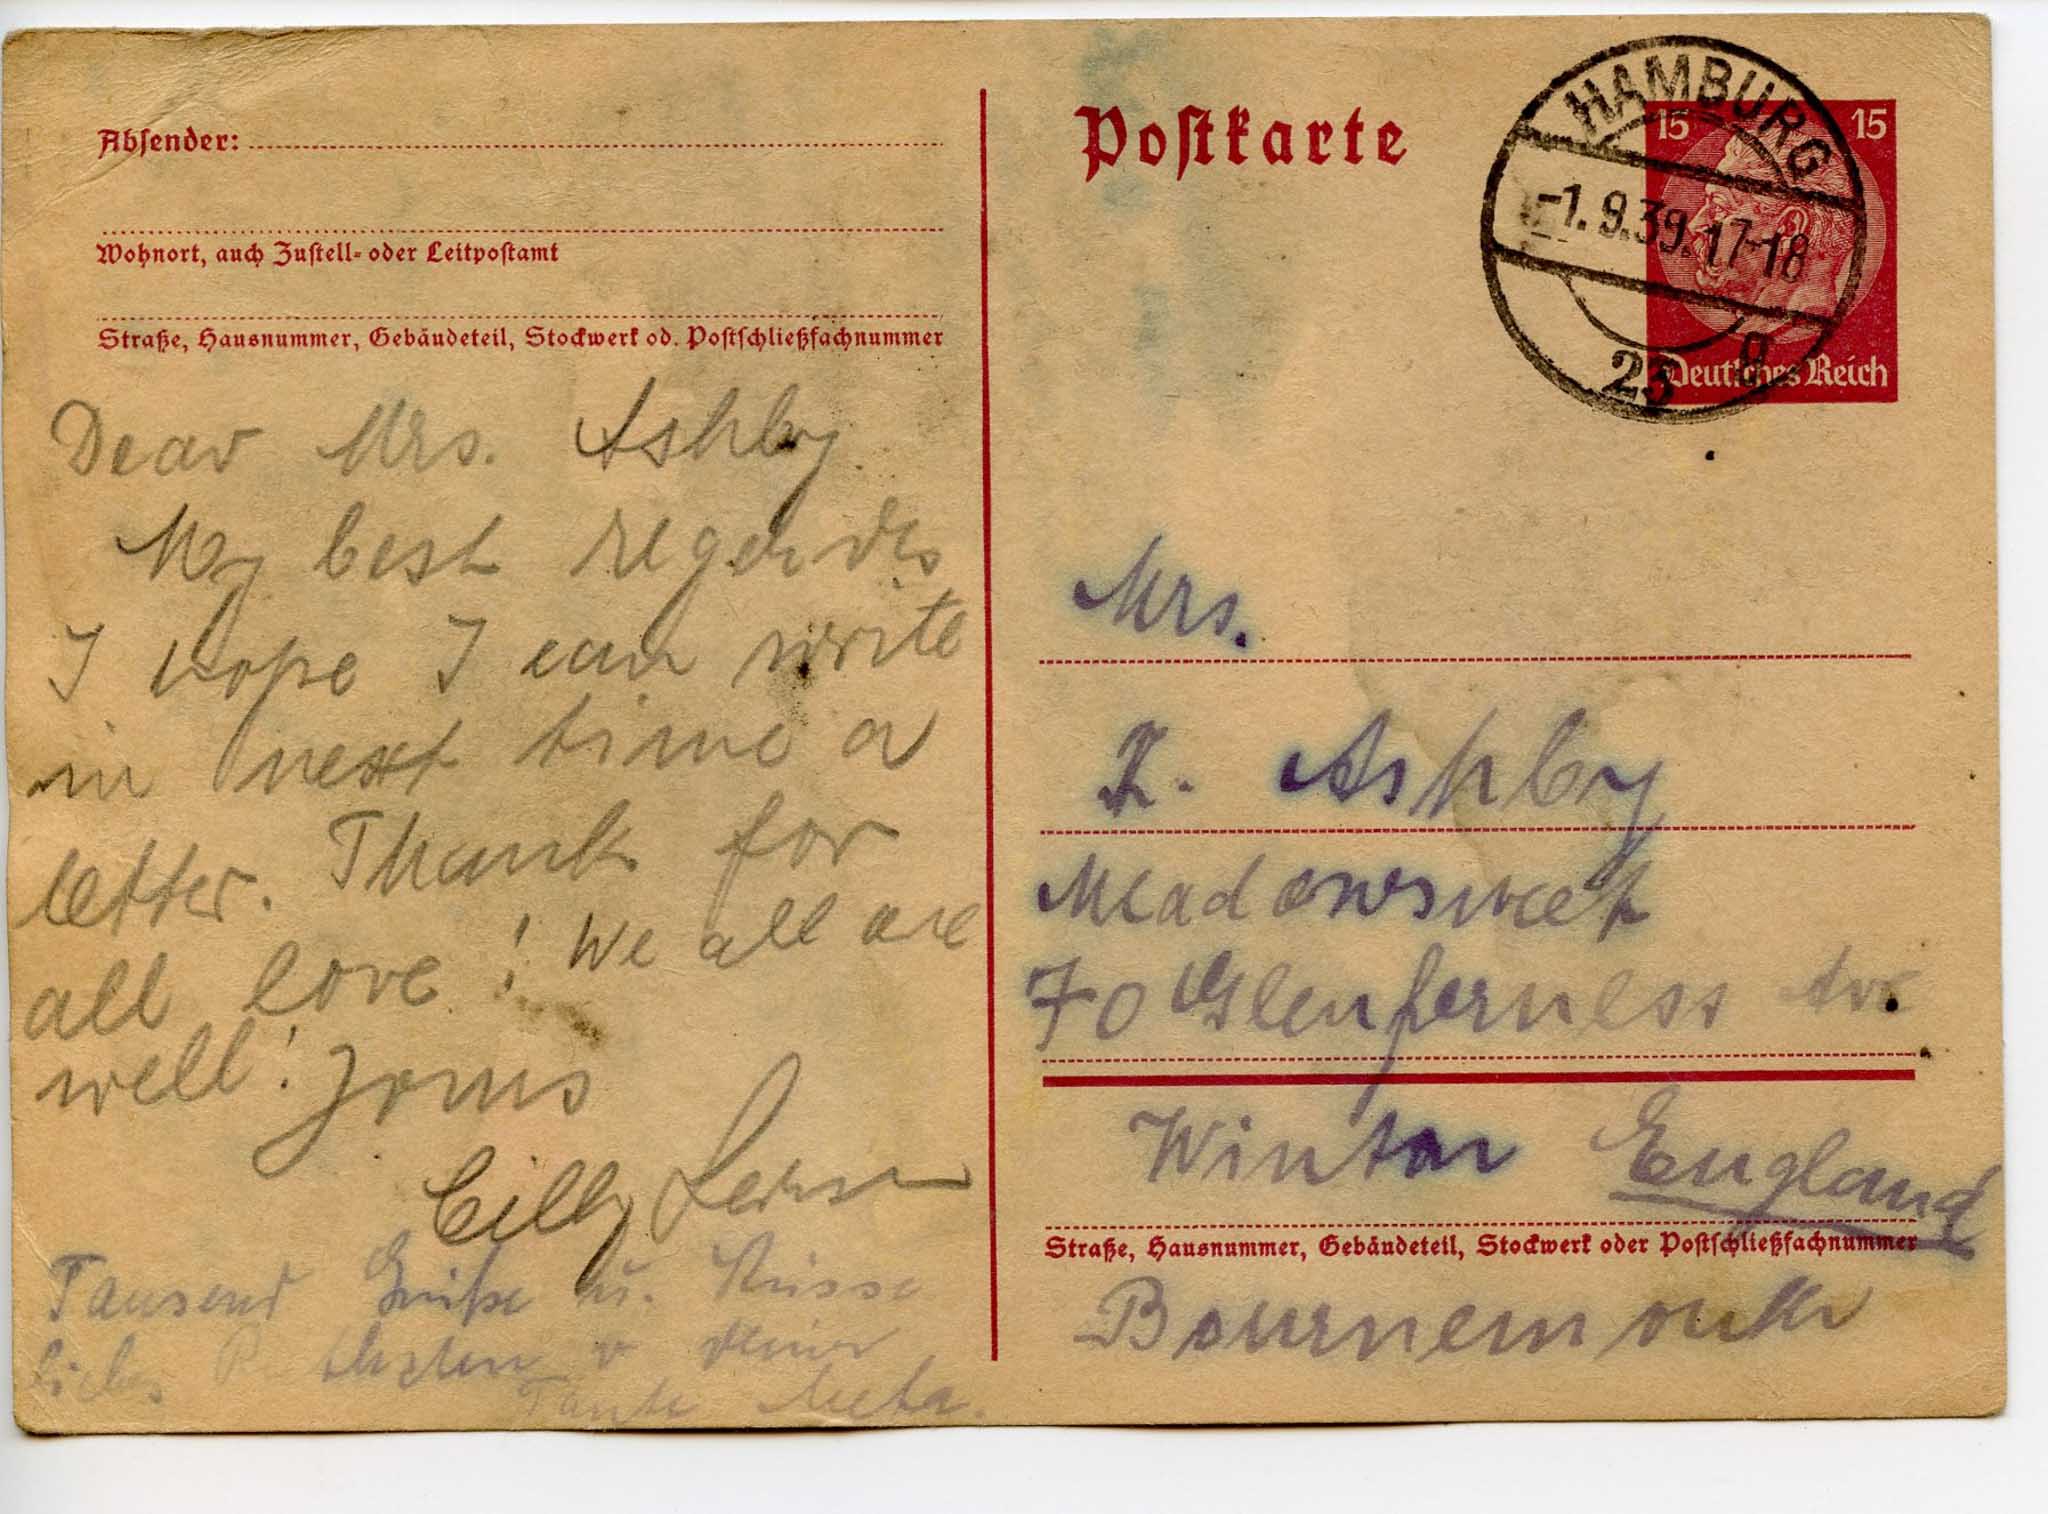 Absender:
Wohnort, auch Zustell- oder Leitpostamt
Straße, Hausnummer, Gebäudeteil, Stockwerk od. Postschließfachnummer
Dear Mrs. Ashby
My best regardes
I hope I can write
in next time a
letter. Thank for
all love! We all are
well! Yours
Cilly
Tausend Grüße u. Küsse
liebes v Deiner
Tante Meta.
Postkarte
HAMBURG
-1.9.39.17-18
23 g
15 15
Deutsches Reich
Mrs.
K. Ashby
Meadowsweet
70 Glenferness Av.
Winton England
Straße, Hausnummer, Gebäudeteil, Stockwerk oder Postschließfachnummer
Bournemouth